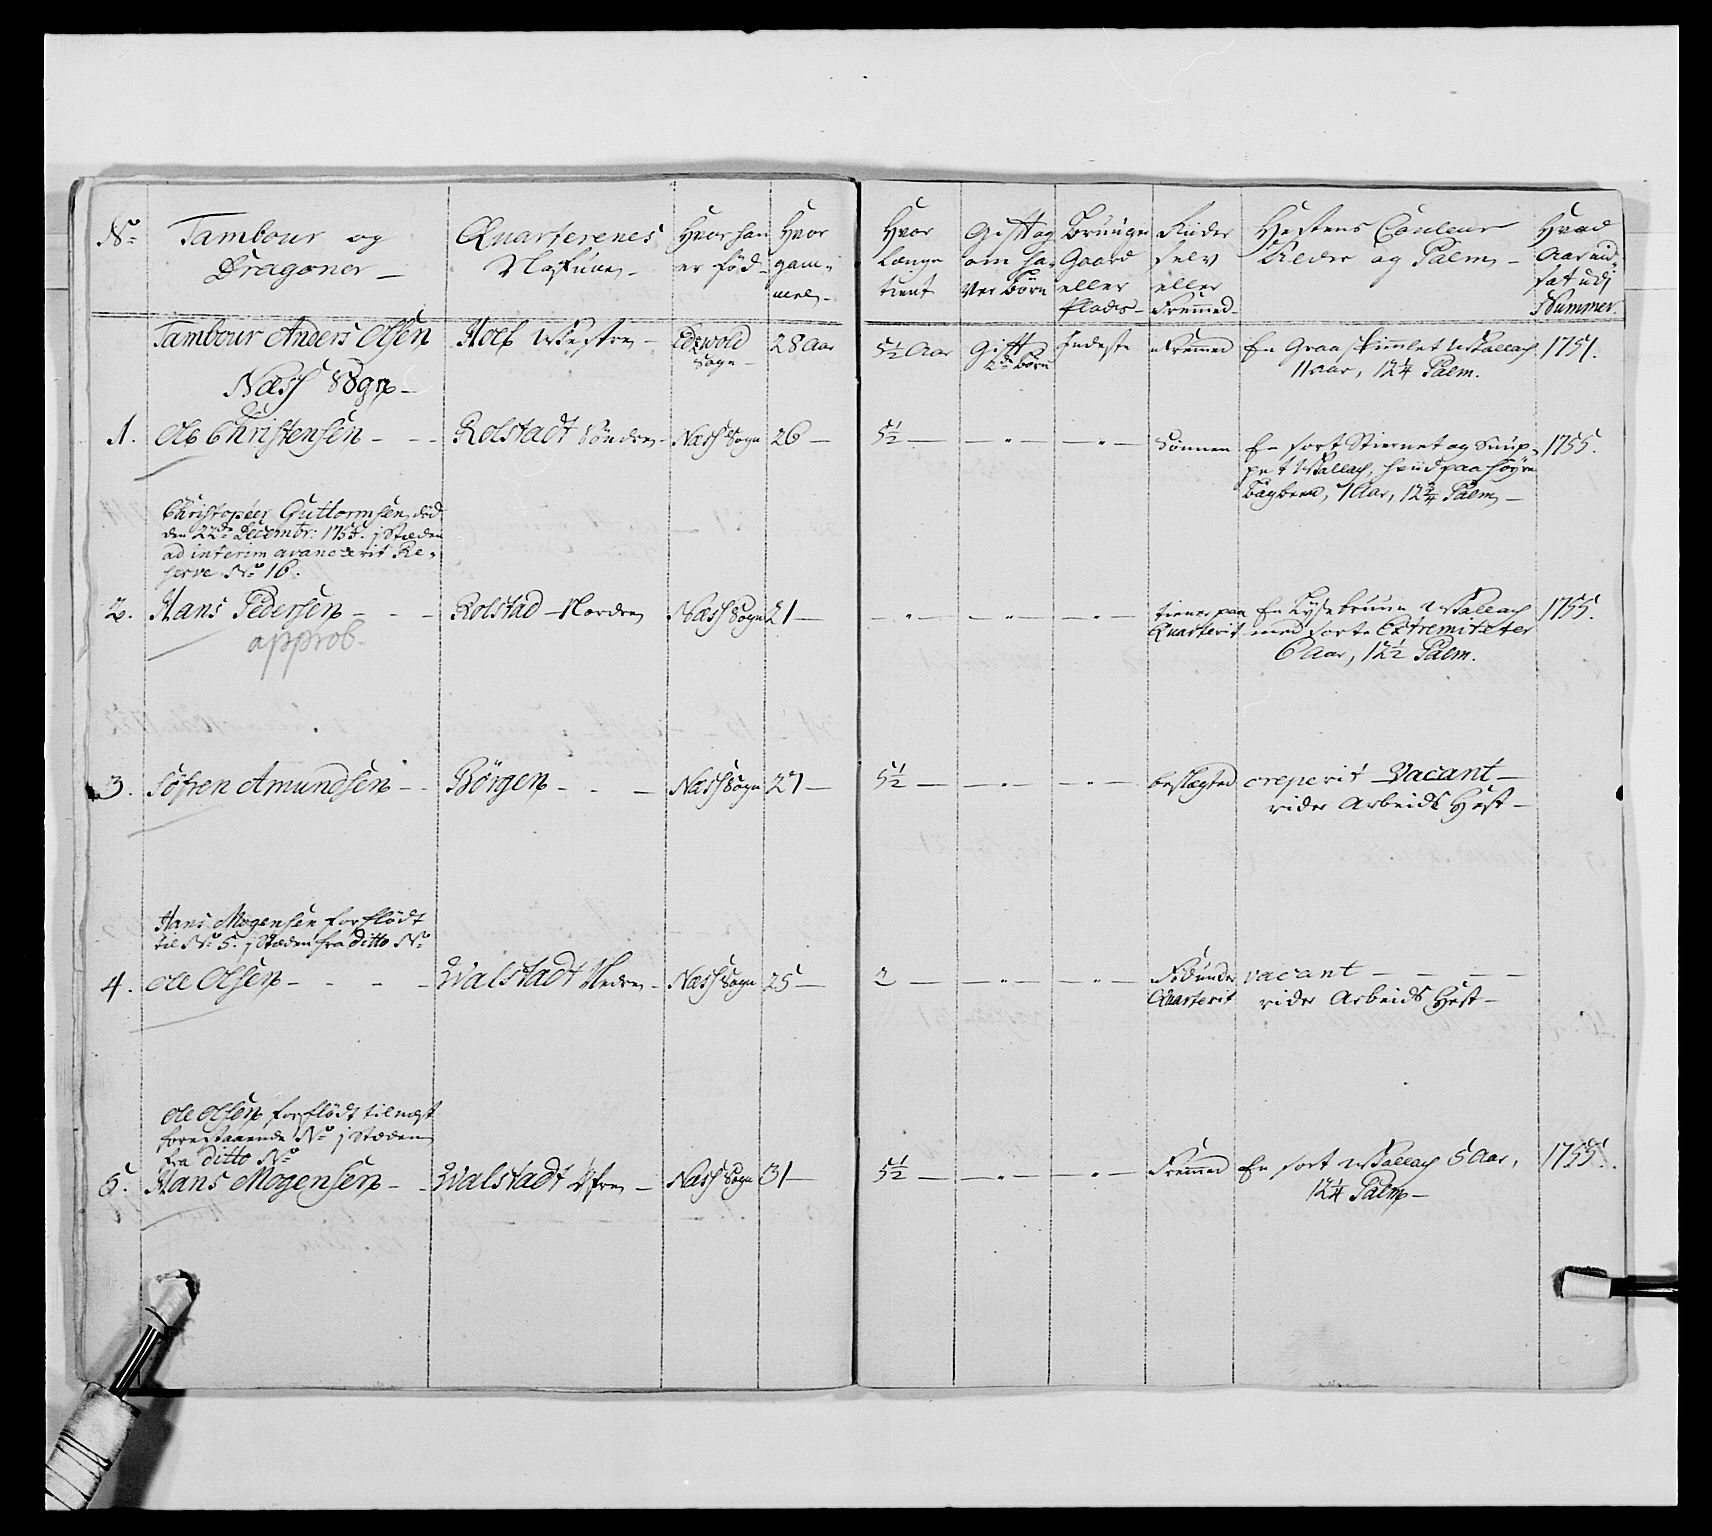 No
Tambour og
Dragoner
Quarterenes
Nafne
Hvor han
er Fød
Hvor
gam¬
mel
Hvor
Længe
tient
Gift og
om ha¬
ver Børn
Bruuger
Gaard
eller
Plads
Rider
selv
eller
Fremmed
Hestens Couleur
Alder og Palm
Hvad
Aar ind¬
sat udj
Nummer
Tambour Anders Olsen
Holt Westre
Edswold
Sogn
28 Aar
5½ Aar
Gift
2de Børn
Fremmed
En Graaskimlet Wallach
11 aar, 12¼ Palm.
1751.
Næss Sogn
1. Ole Christensen
Rolstadt Søndre
Næss Sogn
26
5½
Sønnen
En sort Stiernet og Snup¬
pet Wallach, hvid paa høyre
Bagbeen, 7 Aar, 12¾ Palm
1755.
Christopher Guttormsen død
den 22de Decembr: 1755. j Stæden
ad interim avancerit Re¬
serve No 16.
2. Hans Pedersen
Rolstad Nordre
Næss Sogn
21
tiener paa
Quarterit
En Lyse bruun Wallach
med sorte Extremiteter
6 Aar, 12½ Palm.
1755.
approb.
3. Søfren Amundsen
Børgen
Næss Sogn
27
5½
beslægted
creperit Vacant
rider Arbeids Hest
Hans Mogensen forflødt
til No 5. j Stæden fra ditto No
4. Ole Olsen
Walstadt Nedre
Næss Sogn
25
2
Fød under
Quarterit
vacant
rider Arbeids Hest
Ole Olsen forflødt til næst
forestaaende No j Stæden
fra ditto No
5. Hans Mogensen
Walstadt Øfre
Næss Sogn
31
5½
Fremmed
En sort Wallach 5 Aar,
12¼ Palm
1755.